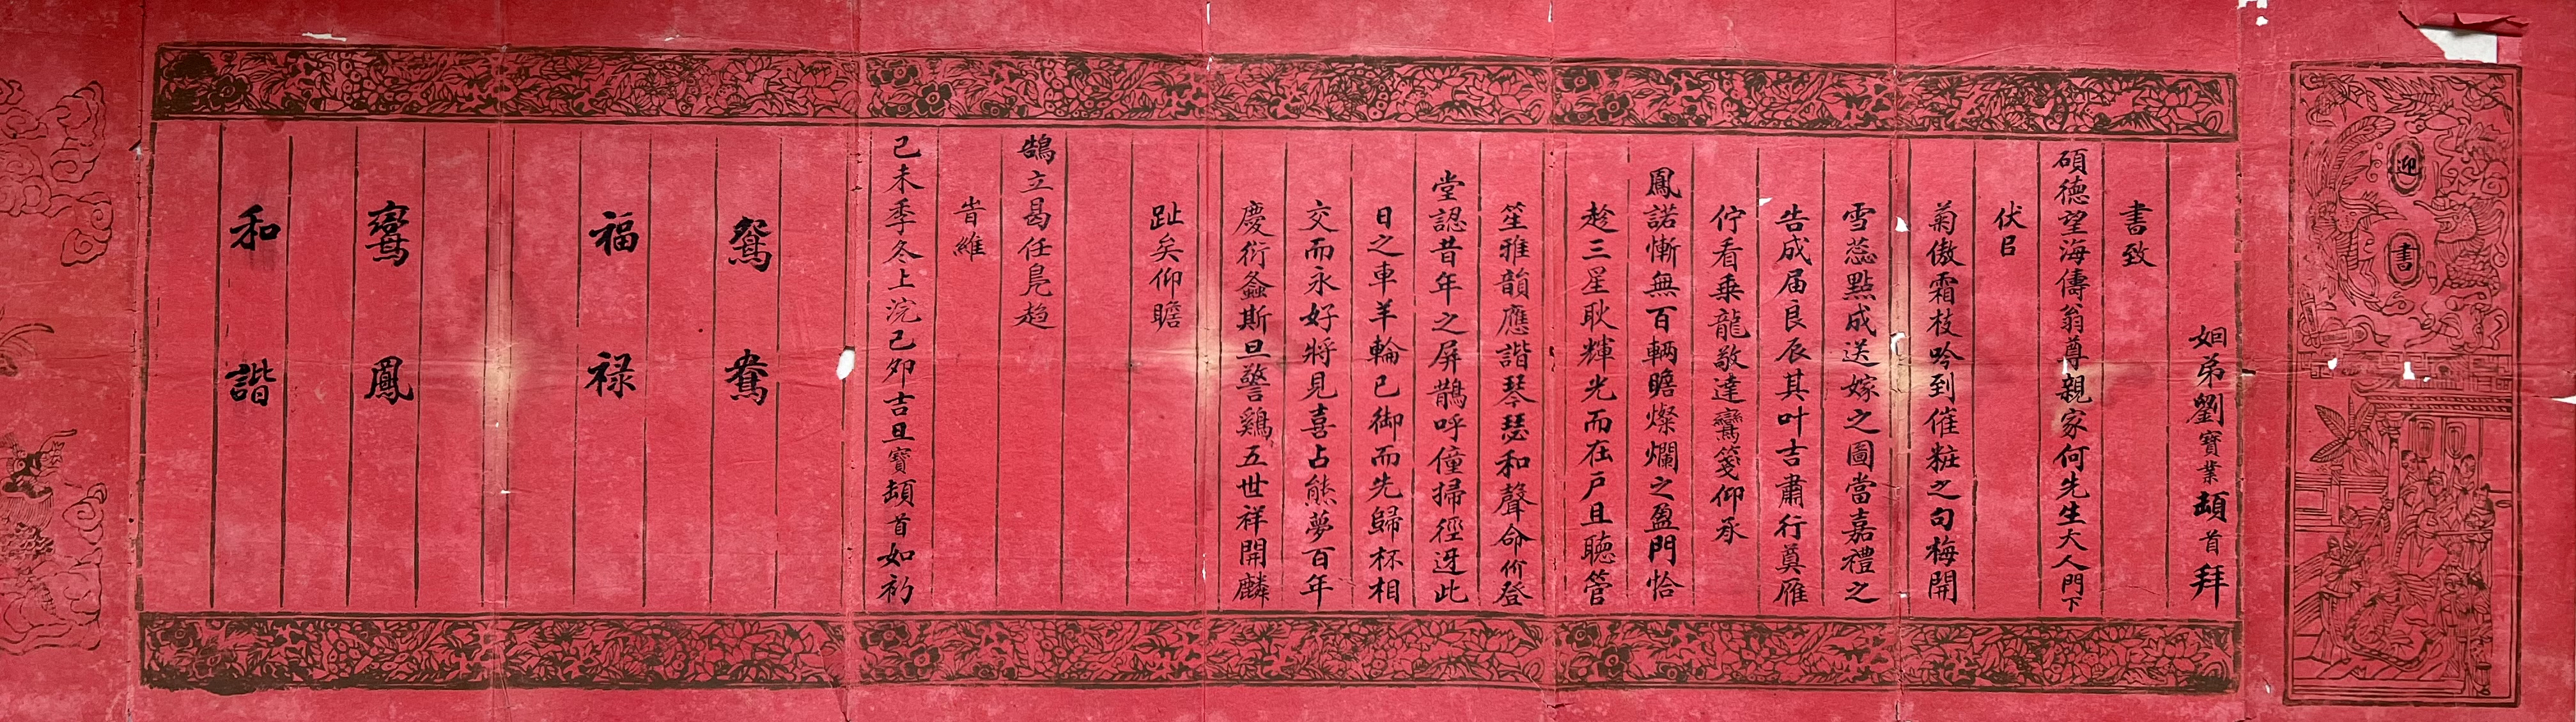 迎書
姻弟劉寶業頓首拜
書致
碩德望海儔翁尊親家何先生大人門下
伏㠯
菊傲霜枝吟到催粧之句梅開
雪蕊點成送嫁之圖當嘉禮之
告成届良辰其叶吉肅行奠雁
佇看乘龍敬達鸞箋仰承
鳳諾慚無百輛瞻燦爛之盈門恰
趁三星耿輝光而在戶且聽管
笙雅韻應諧琴瑟和聲命价登
堂認昔年之屏鵲呼僮掃徑迓此
日之車羊輪已御而先歸杯相
交而永好將見喜占熊夢百年
慶衍螽斯旦警鷄五世祥開麟
趾矣仰瞻
鵠立曷任鳧趨
旹維
己未季冬上浣己夘吉旦寶頓首如礿
鴛鴦
福禄
鸞鳳
和諧